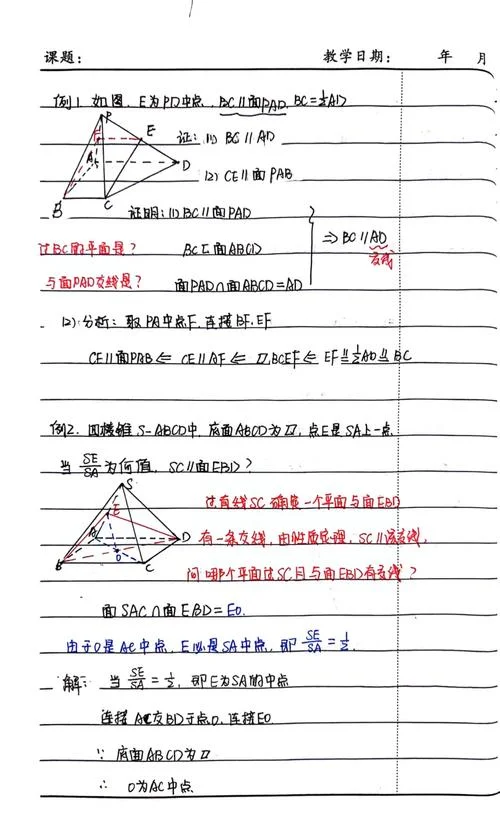 课题: 教学日期: 年 月
例1. 如图, E为PD中点, BC∥面PAD, BC=½AD
P
F
E
A
D
B
C
证: (1) BC∥AD
(2) CE∥面PAB
证明: (1) BC∥面PAD
过BC的平面是? BC⊏面ABCD ⇒BC∥AD
交线
与面PAD交线是? 面PAD∩面ABCD=AD
(2) 分析: 取PA中点F, 连接BF, EF
CE∥面PAB ⇐ CE∥AF ⇐ ▱BCEF ⇐ EF⫽½AD⫽BC
例2. 四棱锥S-ABCD中, 底面ABCD为▱, 点E是SA上一点,
当SE/SA为何值, SC∥面EBD?
S
E
A
D
O
B
C
过直线SC确定一个平面与面EBD
有一条交线, 由性质定理, SC∥该交线,
问哪个平面过SC且与面EBD有交线?
面SAC∩面EBD=EO.
由于O是AC中点, E必是SA中点, 即SE/SA=½.
解: 当SE/SA=½, 即E为SA的中点
连接AC交BD于点O, 连接EO
∵ 底面ABCD为▱
∴ O为AC中点